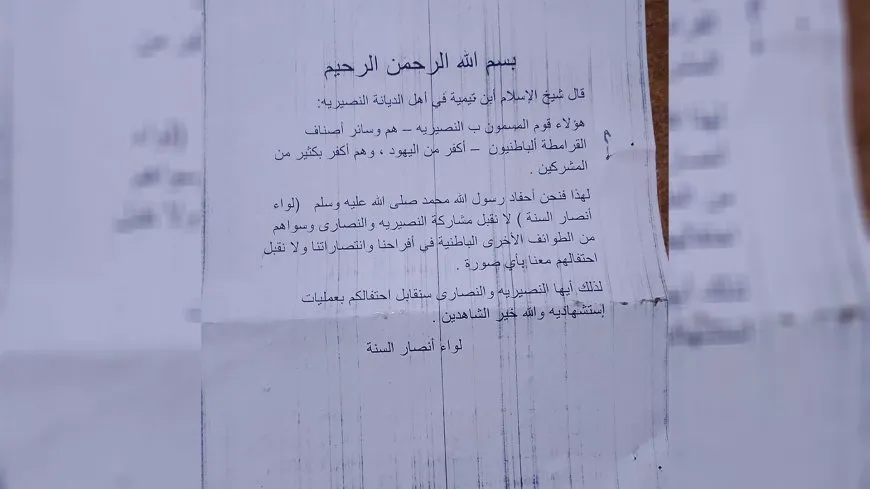 بسم الله الرحمن الرحيم
قال شيخ الإسلام أبن تيمية في أهل الديانة النصيريه:
هؤلاء قوم المسمون ب النصيريه – هم وسائر أصناف
القرامطة ألباطنيون – أكفر من اليهود ، وهم أكفر بكثير من
المشركين .
لهذا فنحن أحفاد رسول الله محمد صلى الله عليه وسلم (لواء
أنصار السنة ) لا نقبل مشاركة النصيريه والنصارى وسواهم
من الطوائف الأخرى الباطنية في أفراحنا وانتصاراتنا ولا نقبل
احتفالهم معنا بأي صورة .
لذلك أيها النصيريه والنصارى سنقابل احتفالكم بعمليات
إستشهاديه والله خير الشاهدين .
لواء أنصار السنة